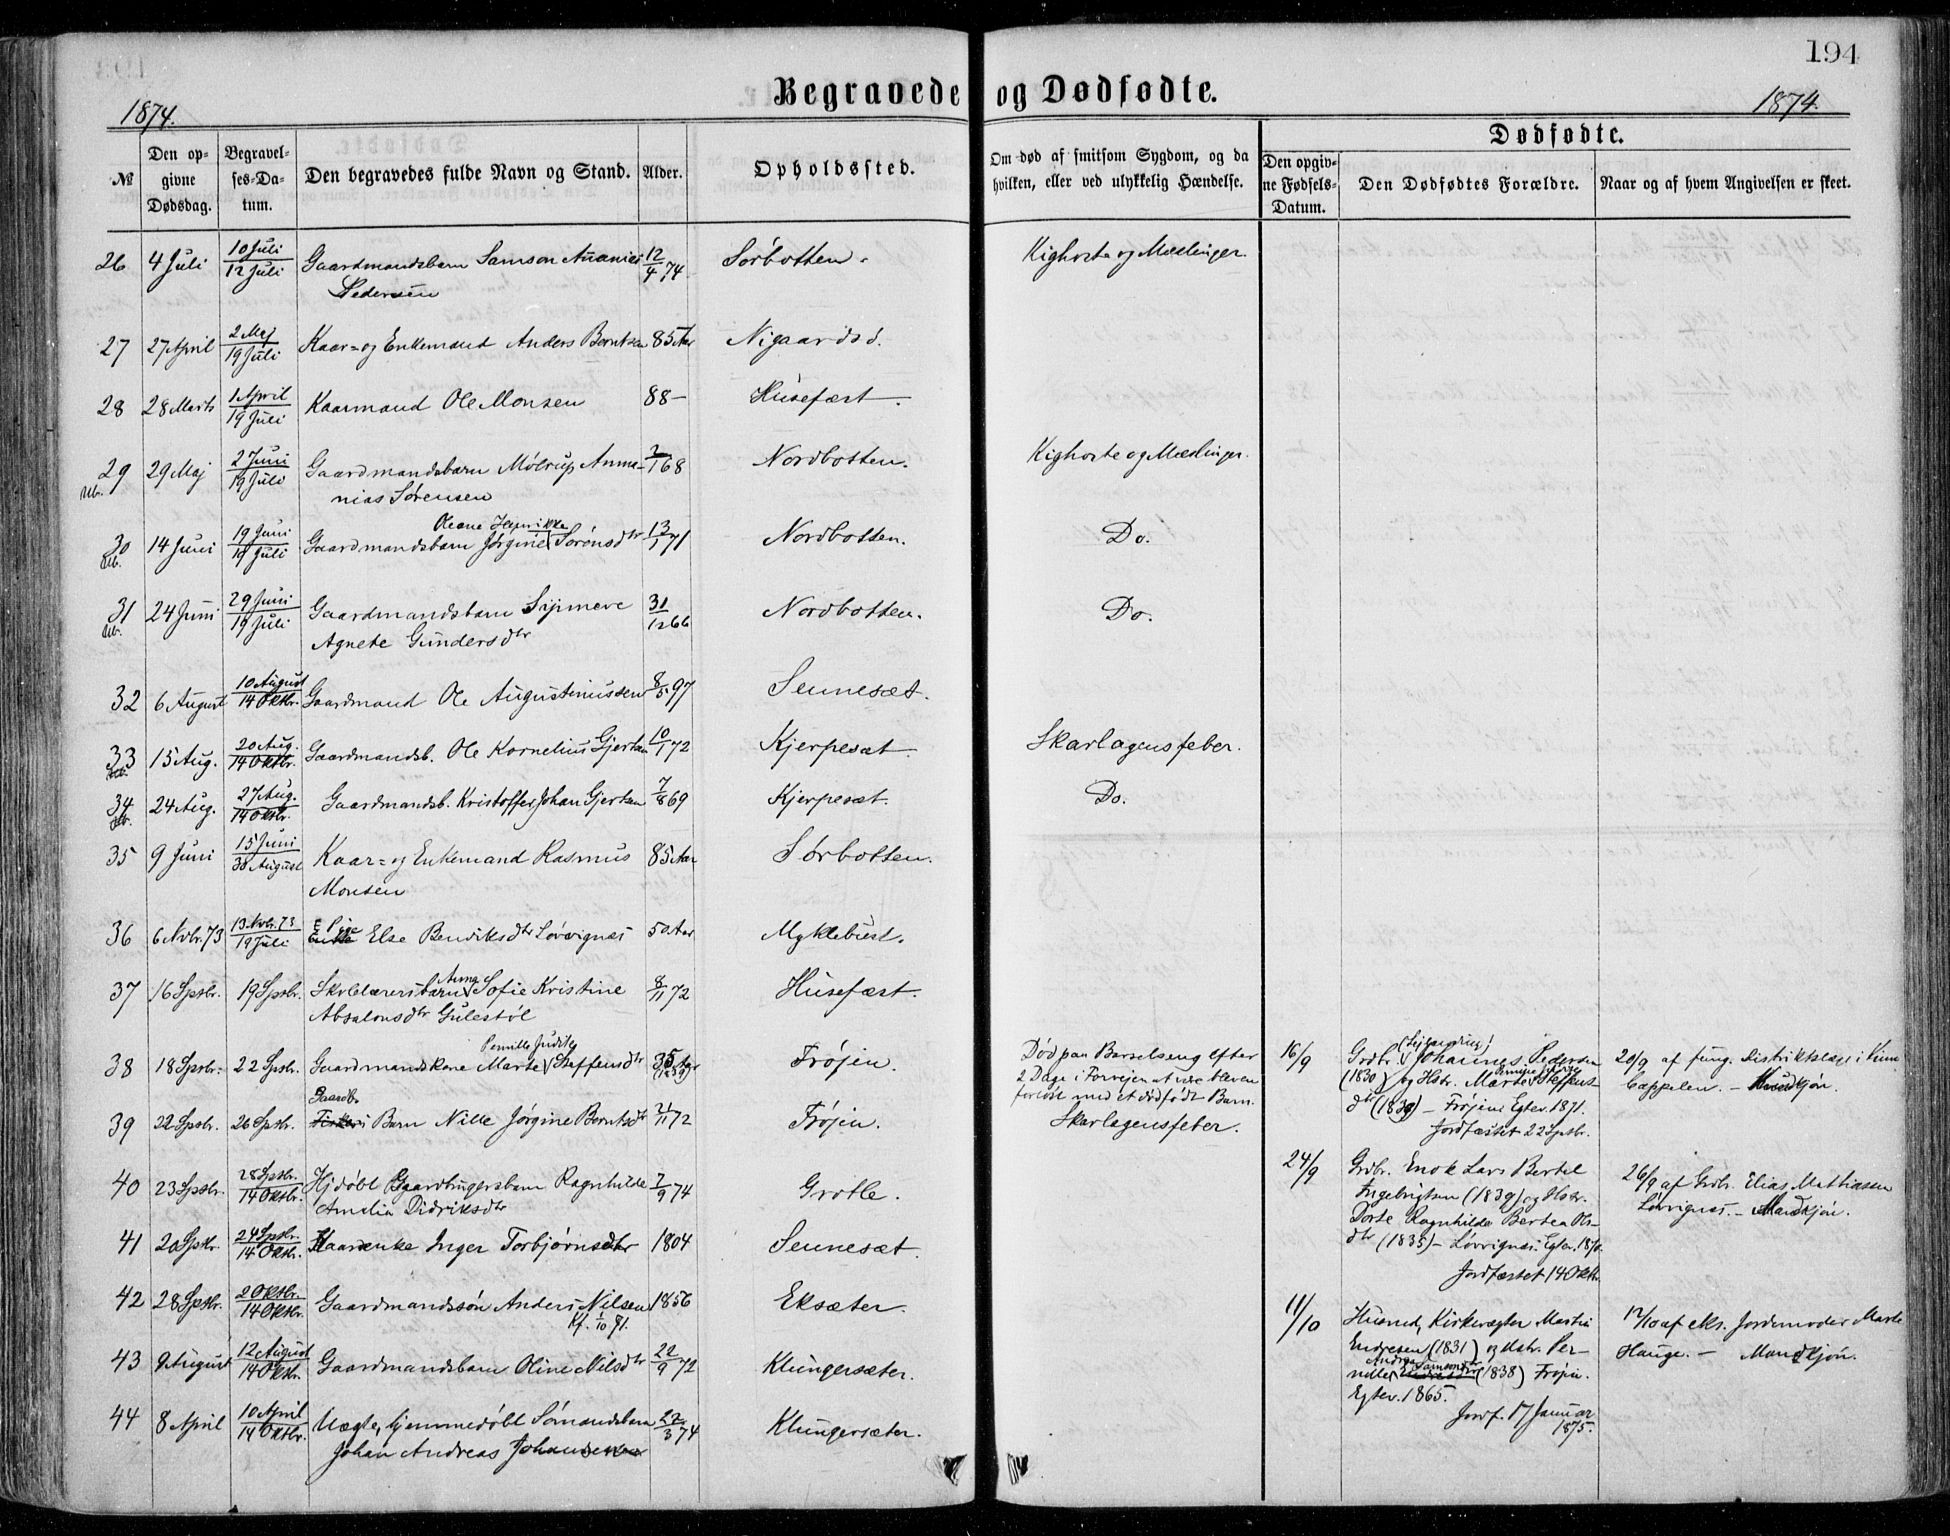 194
Begravede og Dødfødte.
1874. 1874.
№ Den opgivne Dødsdag. Begravelses-Datum. Den begravedes fulde Navn og Stand. Alder. Opholdssted. Om død af smitsom Sygdom, og da hvilken, eller ved ulykkelig Hændelse. Dødfødte. Den opgivne Fødsels-Datum. Den Dødfødtes Forældre. Naar og af hvem Angivelsen er skeet.
26 4 Juli 10 Juli 12 Juli Gaardmandsbarn Samson Ananias 12/4 74 Sørbotten. Kighoste og Mæslinger.
Pedersen
27 27 April 2 Maj 19 Juli Kaar- og Enkemand Anders Berntsen 85 Aar Nigaardsø.
28 28 Marts 1 April 19 Juli Kaarmand Ole Monsen 88 — Husefæst.
29 29 Maj 2 Juni 19 Juli Gaardmandsbarn Møltrup Anna- /1 68 Nordbotten. Kighoste og Mæslinger.
nias Sørensen
Oleane Henrikke
30 14 Juni 19 Juni 19 Juli Gaardmandsbarn Jørgine Sørensdtr 13/1 71 Nordbotten. Do.
31 24 Juni 29 Juni 19 Juli Gaardmandsbarn Synneve 31/12 66 Nordbotten. Do.
Agnete Gundersdtr
32 6 August 10 August 14 Oktbr. Gaardmand Ole Augustinussen 8/5 97 Sennesæt.
33 15 Aug. 20 Aug. 14 Oktbr. Gaardmandsb. Ole Kornelius Gjertsen 10/1 72 Kjerpesæt Skarlagensfeber.
34 24 Aug. 27 Aug. 14 Oktbr. Gaardmandsb. Kristoffer Johan Gjertsen 7/8 69 Kjerpesæt. Do.
35 9 Juni 15 Juni 30 August Kaar- og Enkemand Rasmus 85 Aar Sørbotten.
Monsen
36 6 Novbr. 73 13 Novbr. 73 19 Juli Pige Else Bendiksdtr Løvrignæs 50 Aar Myklebust.
37 16 Sptbr. 19 Sptbr. Skolelærersbarn Anna Sofie Kristine 8/11 72 Husefæst.
Absalonsdtr Gulestøl
Pernille Judite
38 18 Sptbr. 22 Sptbr. Gaardmandskone Marte Steffensdtr 35 Aar Frøjen. Død paa Barselseng efter
2 Dage i Forvejen at være bleven
forløst med et dødfødt Barn.
16/9 Grdbr. Johannes Pedersen
(1830) og Hstr. Marte Steffens-
dtr (1839) — Frøjen. Egtev. 1871.
Jordfæstet 22 Sptbr.
20/9 af fung. Distriktslæge i Kinn
Cappelen. — Mandkjøn.
Gaardb.
39 22 Sptbr. 26 Sptbr. Barn Nille Jørgine Berntsdtr /11 72 Frøjen. Skarlagensfeber.
40 23 Sptbr. 28 Sptbr. 14 Oktbr. Hjdøbt Gaardbrugersbarn Ragnhilde 7/9 74 Grotle.
Amelia Didriksdtr
24/9 Grdbr. Enok Lars Bertel
Ingebrigtsen (1839) og Hstr.
Dorte Ragnhilde Bertea Ols-
dtr (1835) — Løvrignæs. Egtev. 1870.
Jordfæstet 14 Oktbr.
26/9 af Grdbr. Elias Mathiassen
Løvrignæs. — Mandkjøn.
41 20 Sptbr. 24 Sptbr. 14 Oktbr. Kaarenke Inger Torbjørnsdtr 1804 Sennesæt.
42 28 Sptbr. 2 Oktbr. 14 Oktbr. Gaardmandssøn Anders Nilsen 1856 Eksæter.
Kf. 1/10 71.
11/10 Husmd, Kirkevægter Martin
Endresen (1831) og Hstr. Per-
nille Andrea Samsonsdtr (1838) Frøjen.
Egtev. 1865.
Jordf. 17 Januar
1875.
17/10 af Eks. Jordemoder Marte
Hauge. — Mandkjøn.
43 9 August 12 August 14 Oktbr. Gaardmandsbarn Oline Nilsdtr 22/9 72 Klungersæter.
44 8 April 10 April 14 Oktbr. Uægte, hjemmedøbt Sømandsbarn 27/3 74 Klungersæter.
Johan Andreas Johannessen